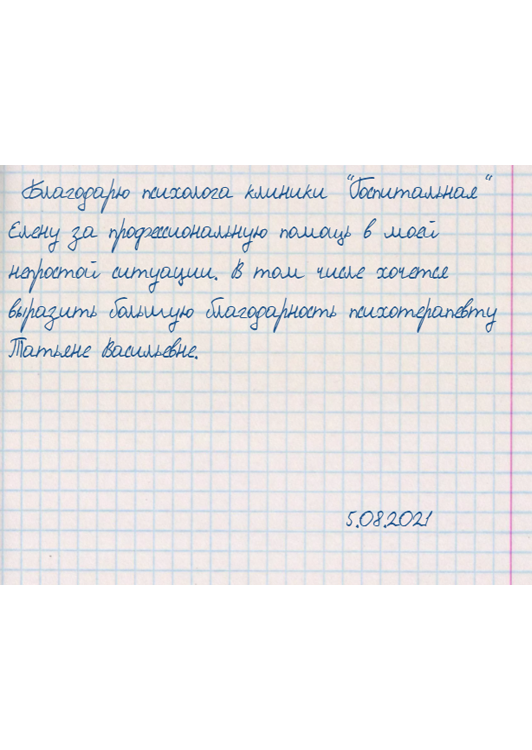 Благодарю психолога клиники "Госпитальная"
Елену за профессиональную помощь в моей
непростой ситуации. В том числе хочется
выразить большую благодарность психотерапевту
Татьяне Васильевне.
5.08.2021